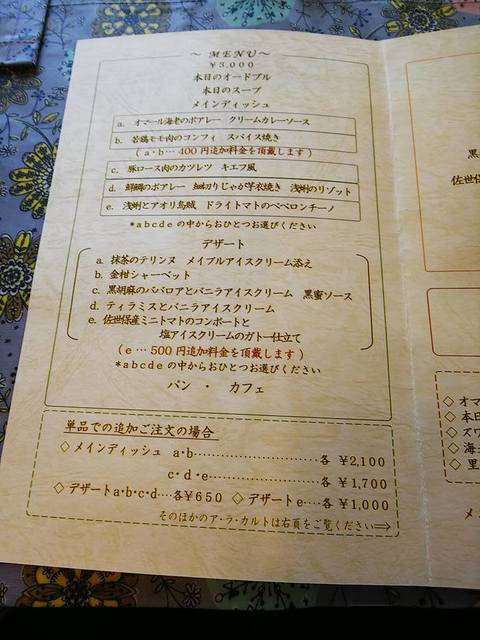 ～ MENU ～
￥3,000
本日のオードブル
本日のスープ
メインディッシュ
a. オマール海老のポアレー クリームカレーソース
b. 若鶏モモ肉のコンフィ スパイス焼き
(a・b… 400 円追加料金を頂戴します)
c. 豚ロース肉のカツレツ キエフ風
d. 鮮鯛のポアレー 細切りじゃが芋衣焼き 浅蜊のリゾット
e. 浅蜊とアオリ烏賊 ドライトマトのペペロンチーノ
*abcde の中からおひとつお選びください
デザート
a. 抹茶のテリンヌ メイプルアイスクリーム添え
b. 金柑シャーベット
c. 黒胡麻のババロアとバニラアイスクリーム 黒蜜ソース
d. ティラミスとバニラアイスクリーム
e. 佐世保産ミニトマトのコンポートと
塩アイスクリームのガトー仕立て
(e … 500 円追加料金を頂戴します)
*abcde の中からおひとつお選びください
パン ・ カフェ
単品での追加ご注文の場合
◇ メインディッシュ a・b……………………各 ￥2,100
c・d・e……………………各 ￥1,700
◇ デザートa・b・c・d……各￥650 ◇ デザートe……各￥1,000
そのほかのア・ラ・カルトは右頁をご覧ください⇒
黒
佐世保
◇ オマ
◇ 本日
◇ ズワ
◇ 海
◇ 里
メ